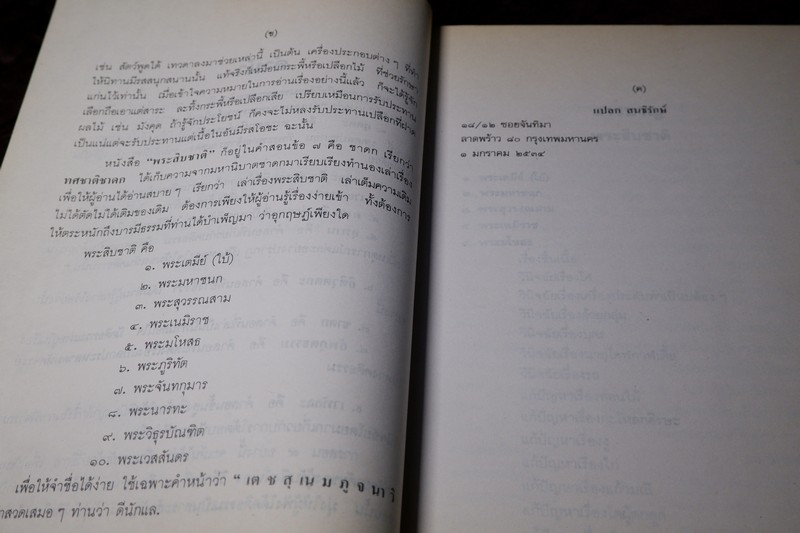 (๒)
เช่น สัตว์พูดได้ เทวดาลงมาช่วยเหล่านี้ เป็นต้น เครื่องประกอบต่าง ๆ ที่ทำ
ให้นิทานมีรสสนุกสนานนั้น แท้จริงก็เหมือนกระพี้หรือเปลือกไม้ ที่ช่วยรักษา
แก่นไว้เท่านั้น เมื่อเข้าใจความหมายในการอ่านเรื่องอย่างนี้แล้ว ก็จะได้รู้จัก
เลือกถือเอาแต่สาระ ละทิ้งกระพี้หรือเปลือกเสีย เปรียบเหมือนการรับประทาน
ผลไม้ เช่น มังคุด ถ้ารู้จักประโยชน์ ก็คงจะไม่หลงรับประทานเปลือกที่ฝาด
เป็นแน่แต่จะรับประทานแต่เนื้อในอันมีรสโอชะ ฉะนั้น
หนังสือ "พระสิบชาติ" ก็อยู่ในคำสอนข้อ ๗ คือ ชาดก เรียกว่า
ทศชาติชาดก ได้เก็บความจากมหานิบาตชาดกมาเรียบเรียงทำนองเล่าเรื่อง
เพื่อให้ผู้อ่านได้อ่านสบาย ๆ เรียกว่า เล่าเรื่องพระสิบชาติ เล่าเต็มความเดิม
ไม่ได้ตัดไม่ได้เติมของเดิม ต้องการเพียงให้ผู้อ่านรู้เรื่องง่ายเข้า ทั้งต้องการ
ให้ตระหนักถึงบารมีธรรมที่ท่านได้บำเพ็ญมา ว่าอุกฤษฏ์เพียงใด
พระสิบชาติ คือ
๑. พระเตมีย์ (ใบ้)
๒. พระมหาชนก
๓. พระสุวรรณสาม
๔. พระเนมิราช
๕. พระมโหสธ
๖. พระภูริทัต
๗. พระจันทกุมาร
๘. พระนารทะ
๙. พระวิธุรบัณฑิต
๑๐. พระเวสสันดร
เพื่อให้จำชื่อได้ง่าย ใช้เฉพาะคำหน้าว่า "เ ต ช สุ เ น ม ภู จ น า วิ
าสวดเสมอ ๆ ท่านว่า ดีนักแล.
(ค)
แปลก สนธิรักษ์
๑๘/๑๒ ซอยจันทิมา
ลาดพร้าว ๘๐ กรุงเทพมหานคร
๑ มกราคม ๒๕๓๔